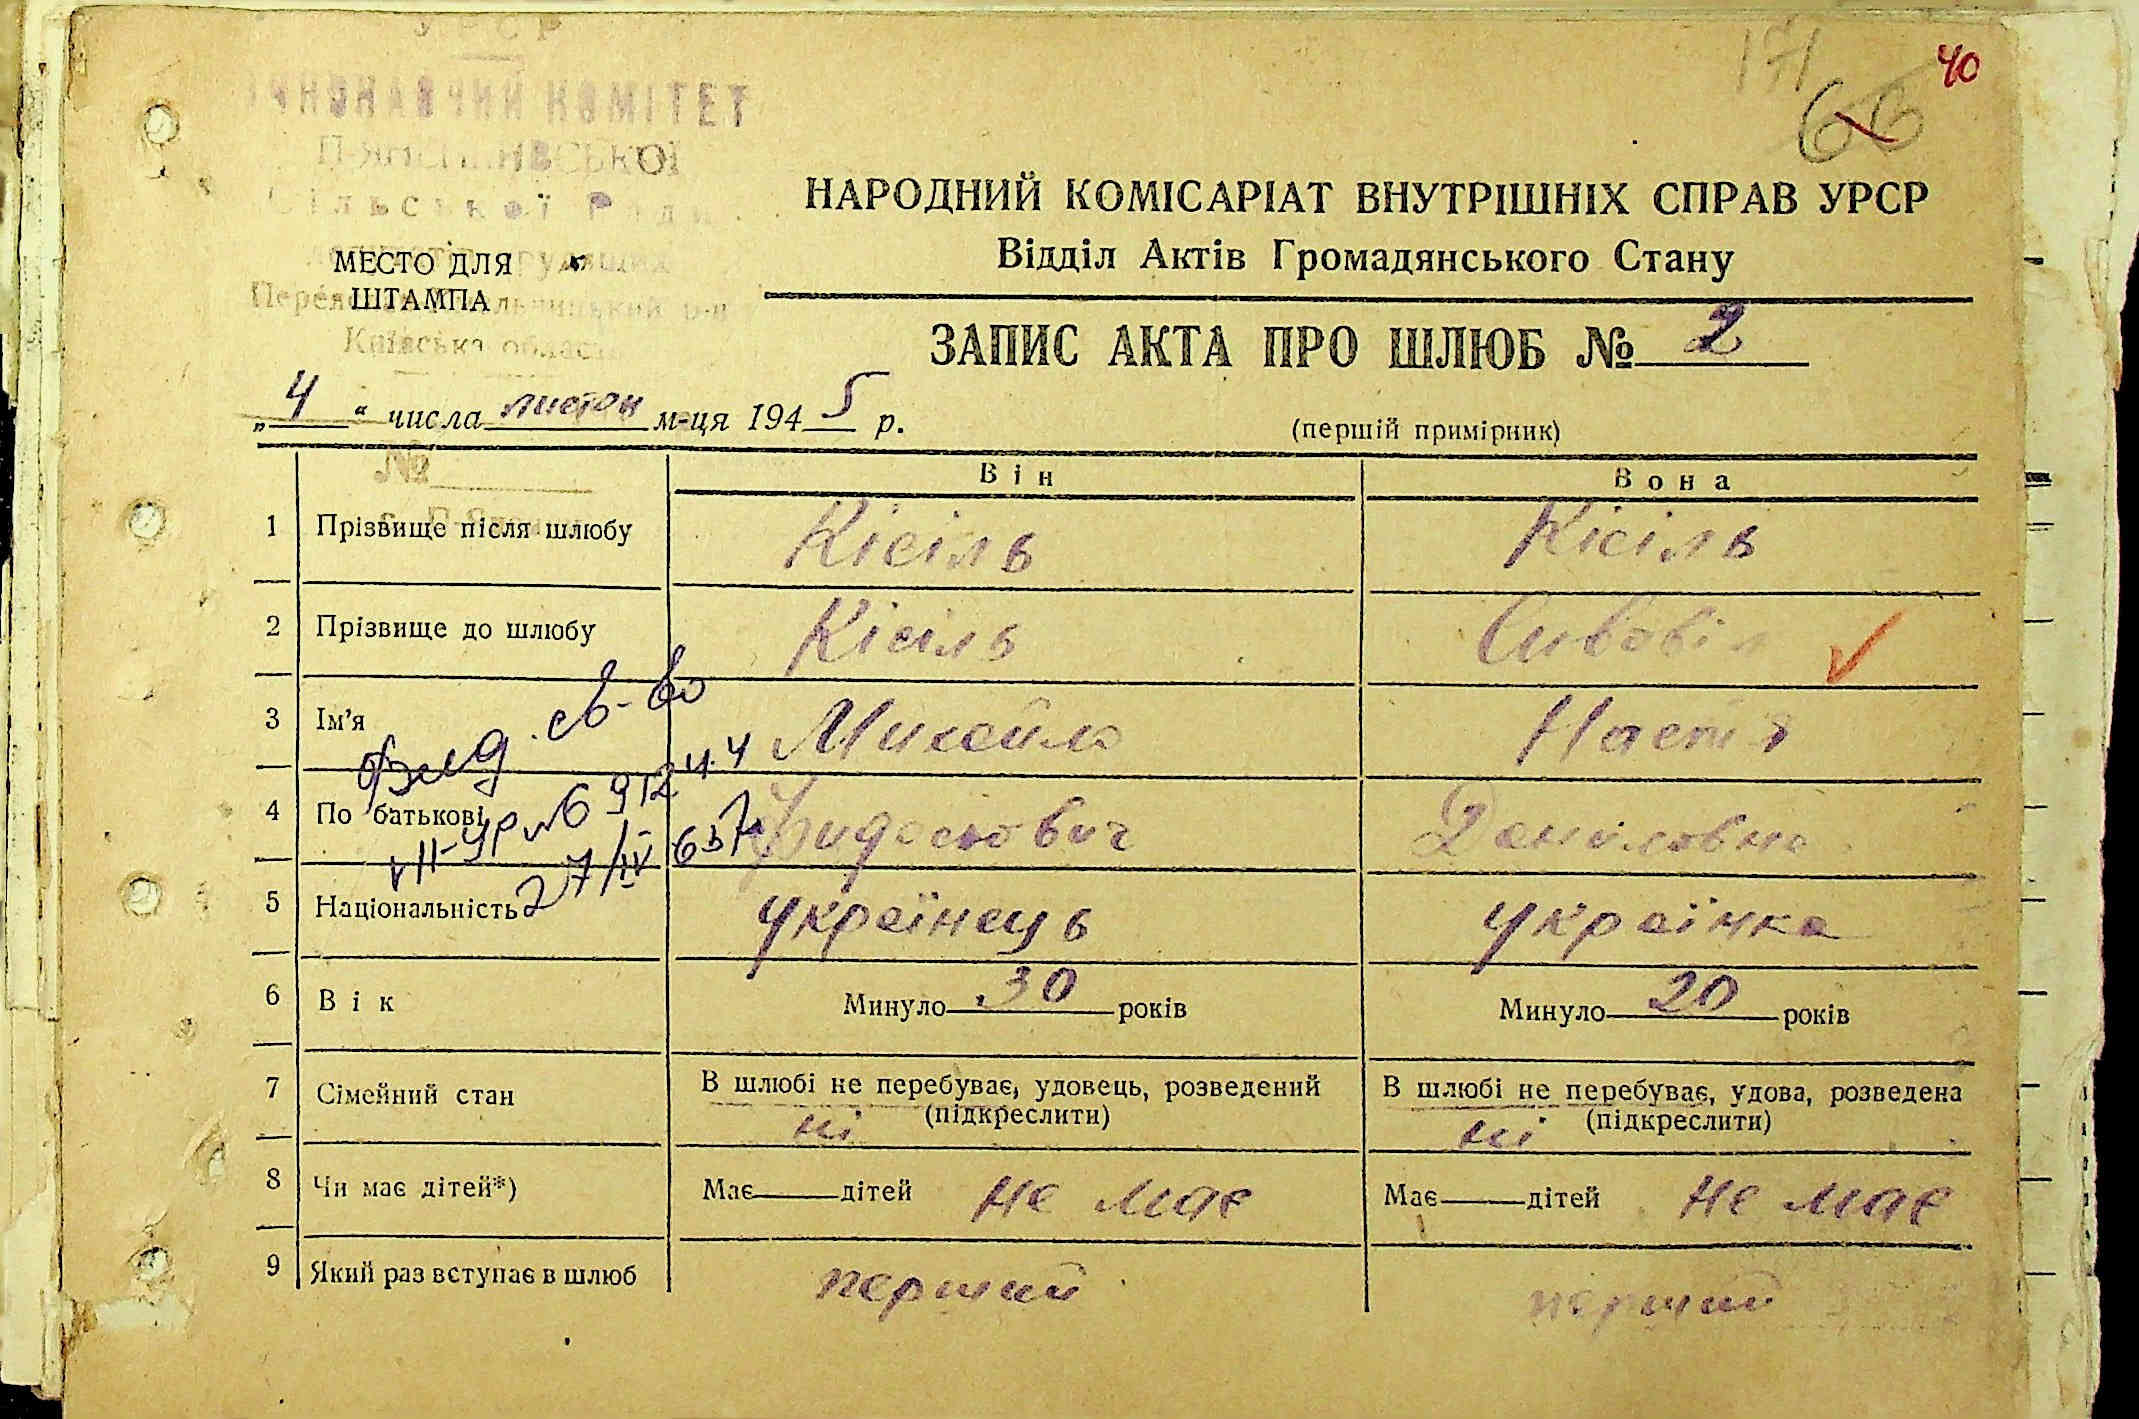 171
40
66
УРСР
ВИКОНАВЧИЙ КОМІТЕТ
Сільської Ради
МЕСТО ДЛЯ
ШТАМПА
Київська область
НАРОДНИЙ КОМІСАРІАТ ВНУТРІШНІХ СПРАВ УРСР
Відділ Актів Громадянського Стану
ЗАПИС АКТА ПРО ШЛЮБ № 2
„4“ числа листоп м-ця 1945 р.
(першій примірник)
№
Він Вона
1 Прізвище після шлюбу Кісіль Кісіль
2 Прізвище до шлюбу Кісіль Сивовіл
3 Ім'я Михайло Настя
выд. св-во
4 По батькові Фидосович Даниловна
27/IV 657
5 Національність українець українка
6 Вік Минуло 30 років Минуло 20 років
7 Сімейний стан В шлюбі не перебуває, удовець, розведений В шлюбі не перебуває, удова, розведена
(підкреслити) (підкреслити)
ні ні
8 Чи має дітей*) Має дітей не має Має дітей не має
9 Який раз вступає в шлюб перший перший